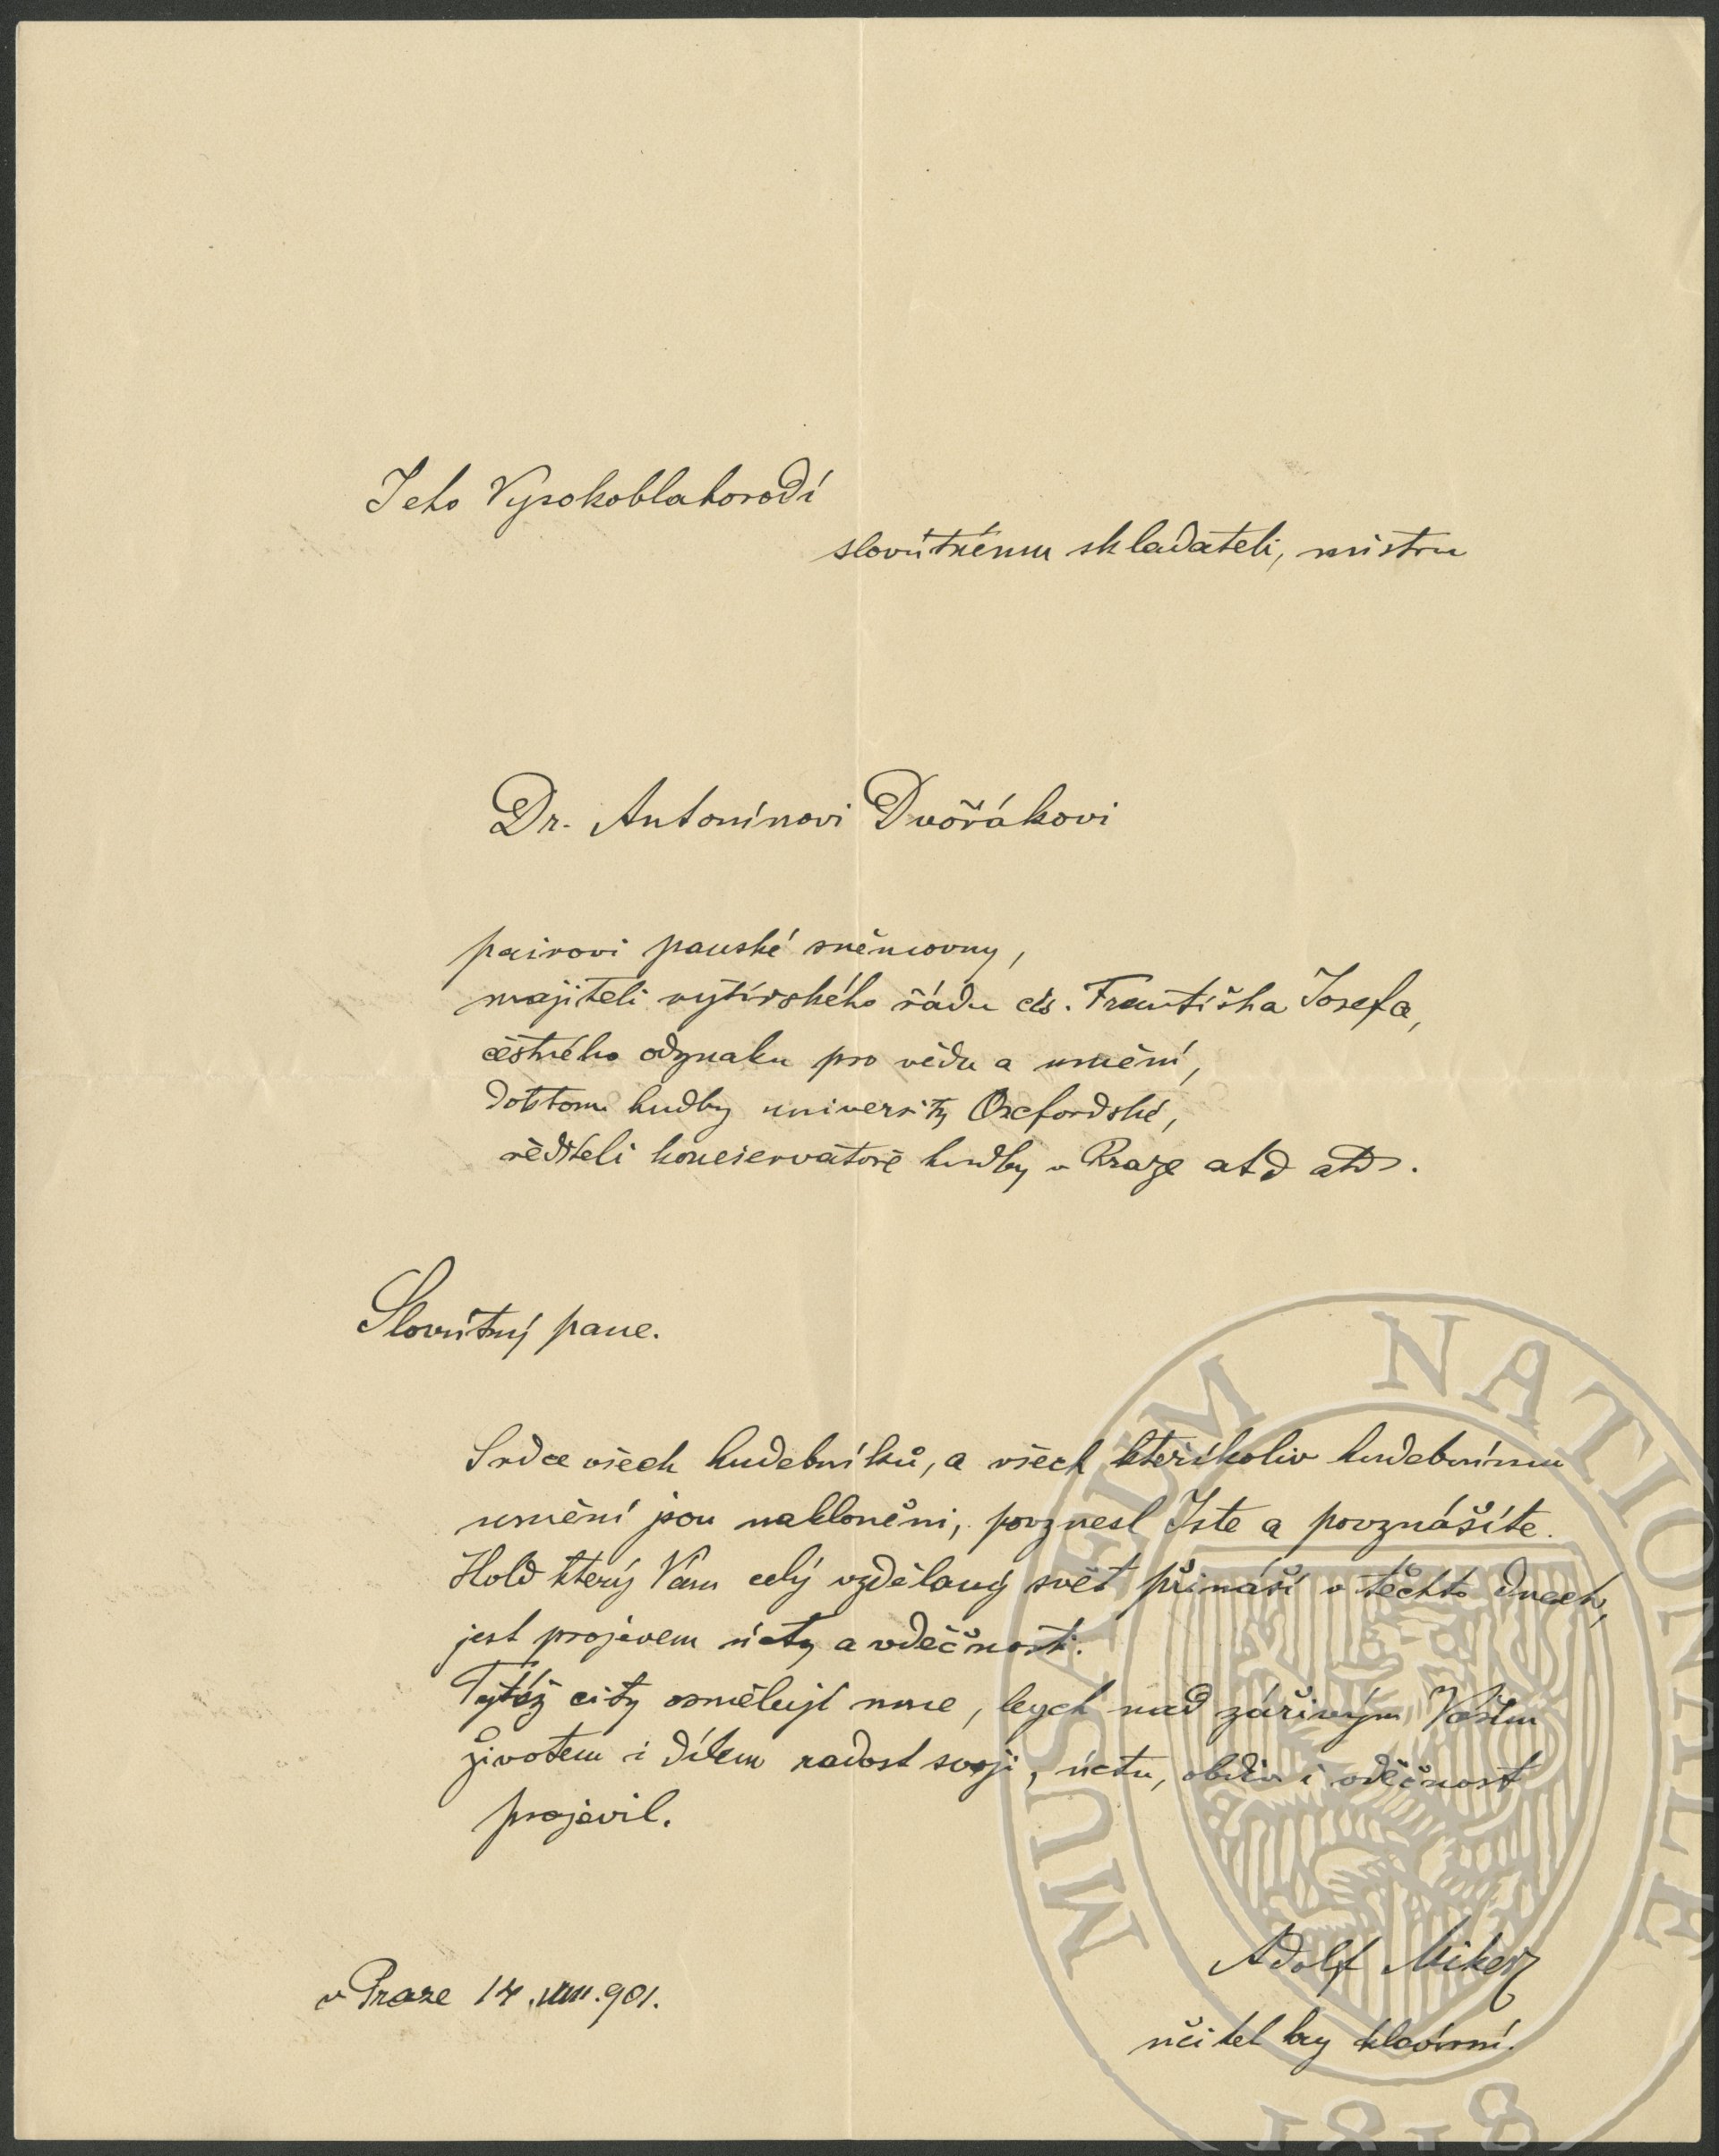 Jeho Vysokoblahorodí
slovútnému skladateli, mistru
Dr. Antonínovi Dvořákovi
pairovi panské sněmovny,
majiteli rytířského řádu cís. Františka Josefa,
čéstného odznaku pro vědu a umění,
doktoru hudby university Oxfordské,
řediteli konservatoře hudby v Praze atd atd.
Slovútný pane.
Srdce všech hudebníků, a všech kteříkoliv hudebnímu
umění jsou nakloněni, povznesl Jste a povznášíte.
Hold který Vám celý vzdělaný svět přináší v těchto dnech,
jest projevem úcty a vděčnosti.
Tytéž city osmělují mne, bych nad zářivým Vaším
životem i dílem radost svoji, úctu, obdiv i vděčnost
projevil.
v Praze 14. .901.
Adolf Mikeš
učitel hry klavírní.
MUSAEUM NATIONALE
1818